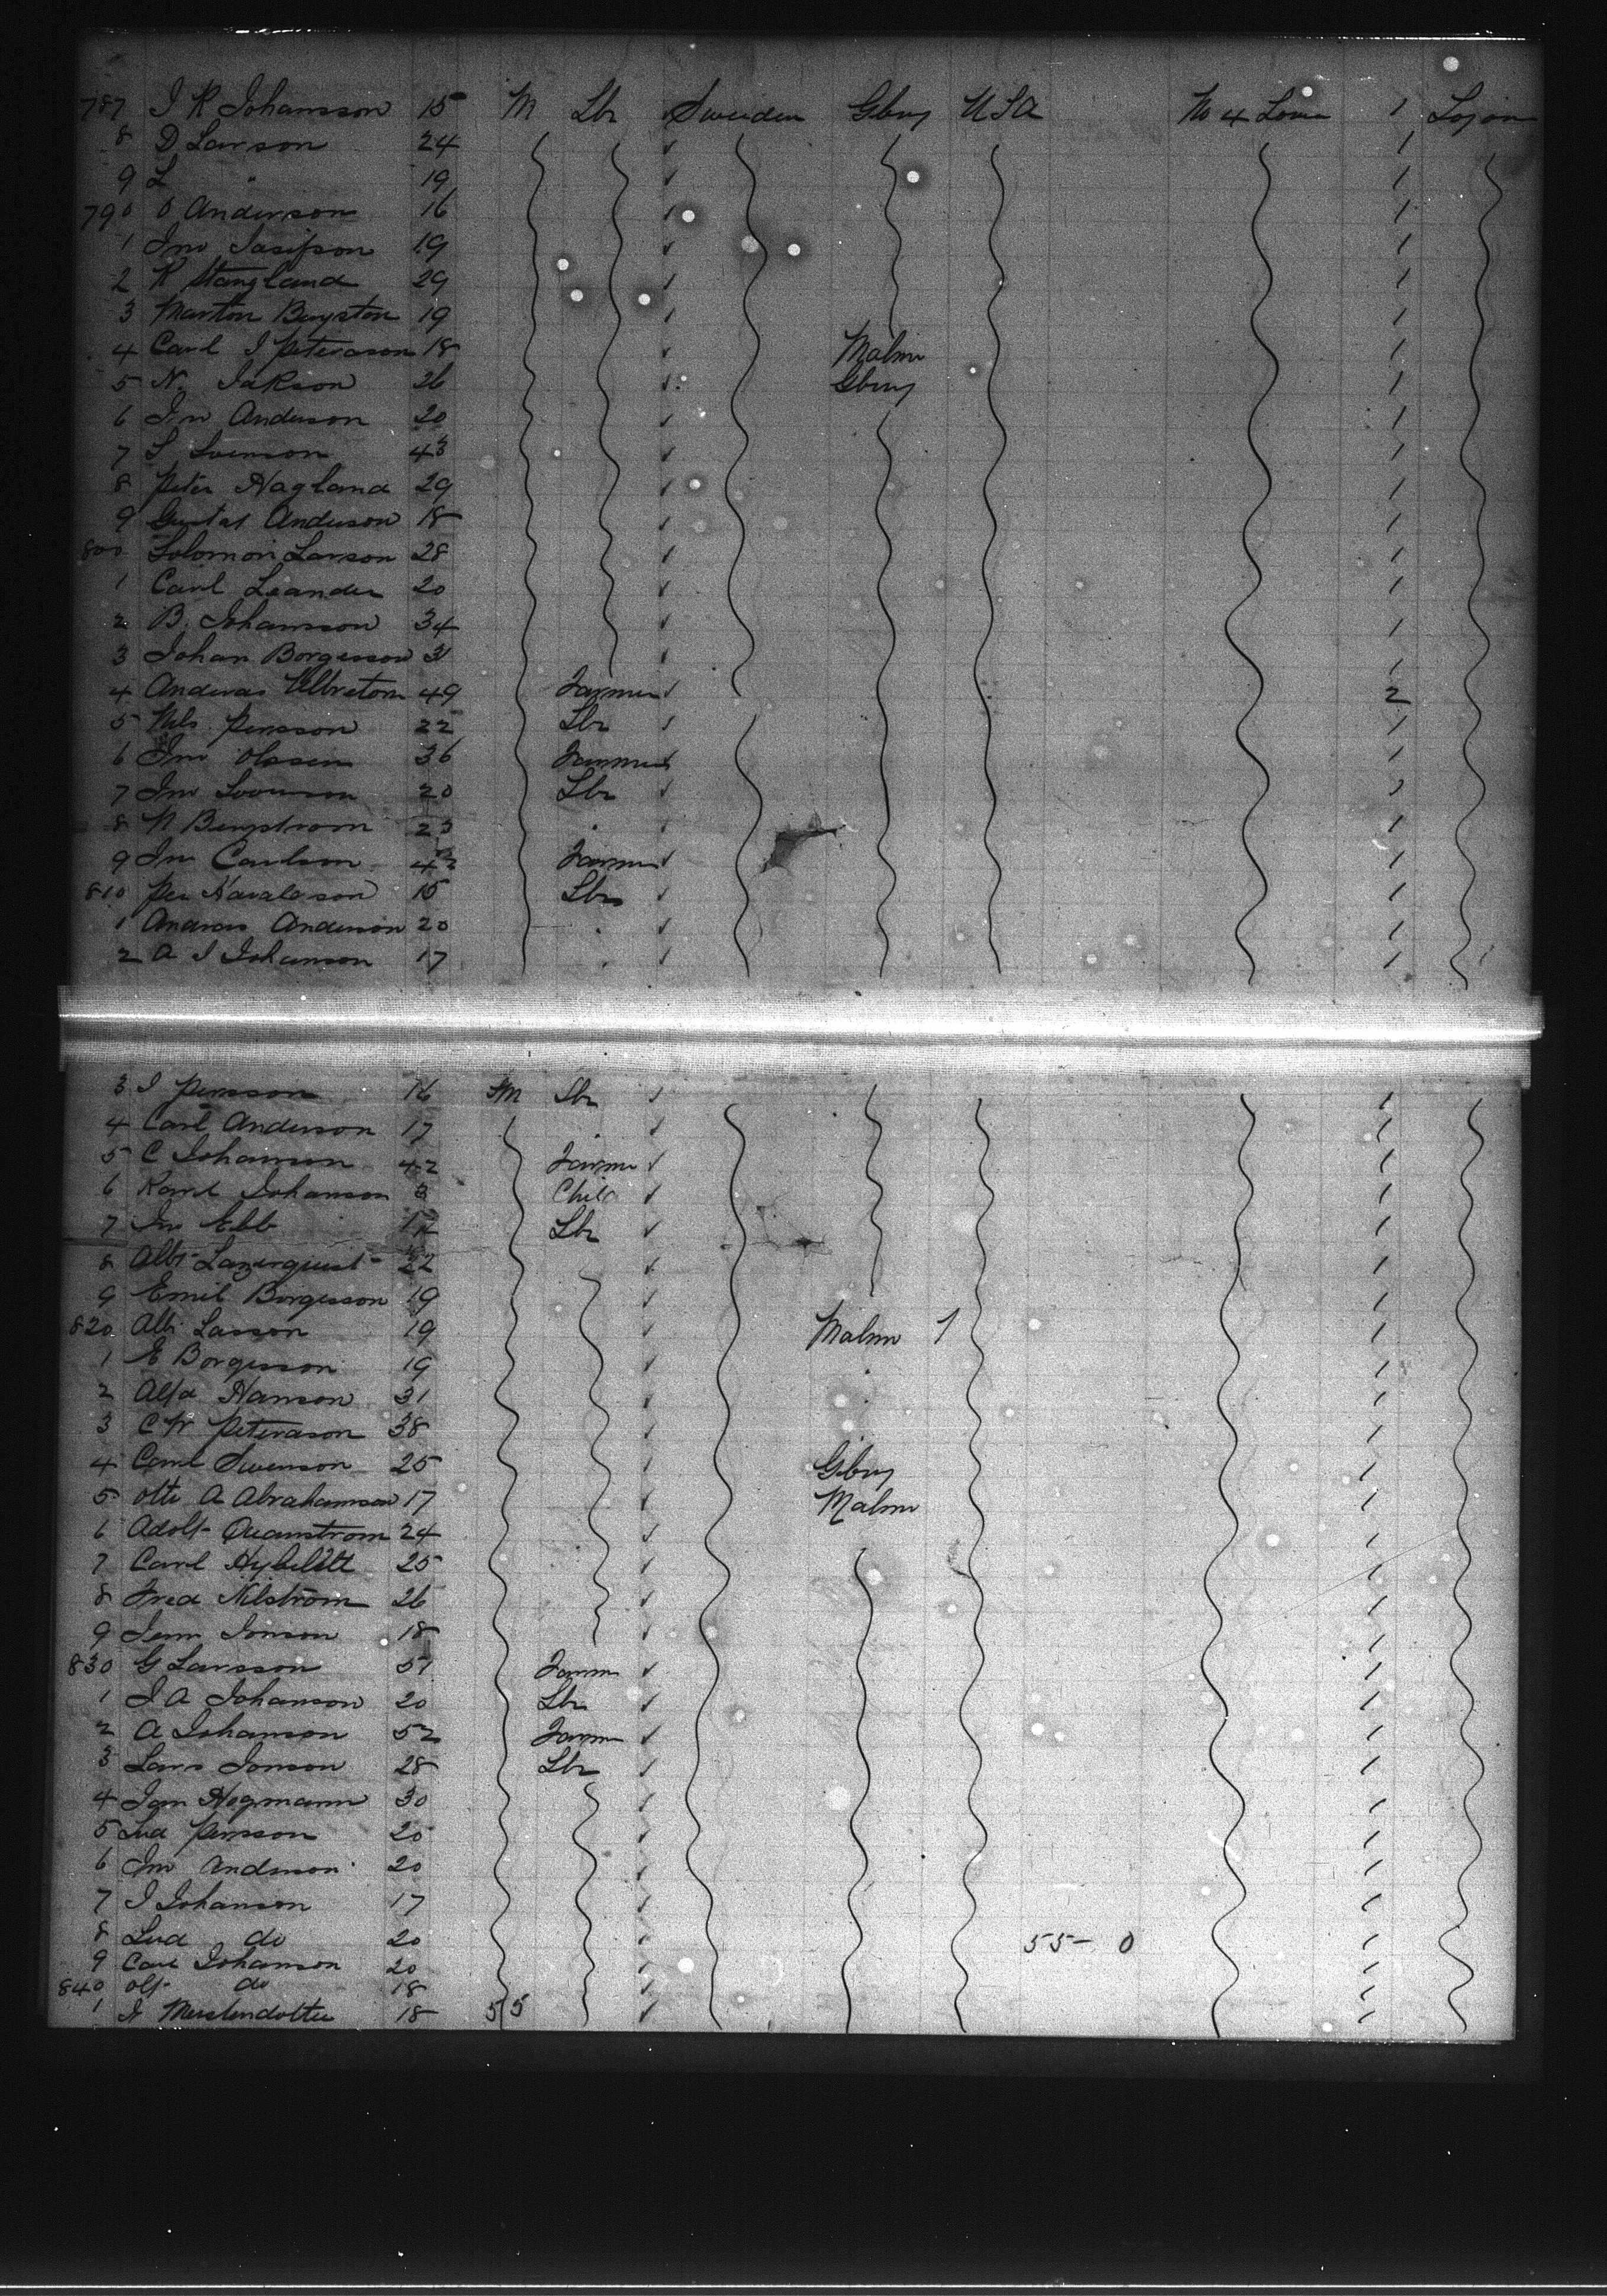 787 J R Johansson 15 M Lbr Sweden Gbury USA No 4 Lower 1 Sojon
8 D Larson 24 1
9 L " 19 1
790 O Anderson 16 1
1 Jno Jasifson 19 1
2 K Stangland 29 1
3 Marton Bengston 19 1
4 Carl J Peterason 18 Malmo 1
5 N. Jakson 26 Gbury 1
6 Jno Anderson 20 1
7 S Svenson 43 1
8 Peter Hagland 29 1
9 Gustaf Anderson 18 1
800 Solomon Larson 28 1
1 Carl Leander 20 1
2 B. Johansson 34 1
3 Johan Borgesson 31 1
4 Anderas 49 Farmer 2
5 Nils Persson 22 Lbr 1
6 Jno Olssen 36 Farmer 1
7 Jno 20 Lbr 1
8 N Bergstrom 23 " 1
9 Jno Carlson 43 Farmer 1
810 Per Haraldson 15 Lbr 1
1 Andras Anderson 20 " 1
2 A J Johanson 17 " 1
3 J Persson 16 M Lbr 1
4 Carl Anderson 17 " 1
5 C Johanson 42 Farmer 1
6 Karl Johanson 3 Child 1
7 Jno Ebb Lbr 1
8 Albt Lagerquist 22 1
9 Emil Borgesson 19 1
820 Alb Lasson 19 Malmo 1 1
1 E Borgesson 19 " 1
2 Alfd Hanson 31 1
3 C W Peterason 38 1
4 Carl Swenson 25 Gbury 1
5 Otto A Abrahamson 17 Malmo 1
6 Adolf Quanstrom 24 1
7 Carl 25 1
8 Fred Nilstrom 26 1
9 Jonson 18 1
830 G Larsson 51 Farmer 1
1 J A Johanson 20 Lbr 1
2 A Johanson 52 Farmer 1
3 Lars Jonson 28 Lbr 1
4 Hogmann 30 1
5 Lud Persson 20 1
6 Jno Anderson 20 1
7 J Johanson 17 1
8 Lud do 20 55 - 0 1
9 Carl Johanson 20 1
840 Olf do 18 1
1 18 55 1